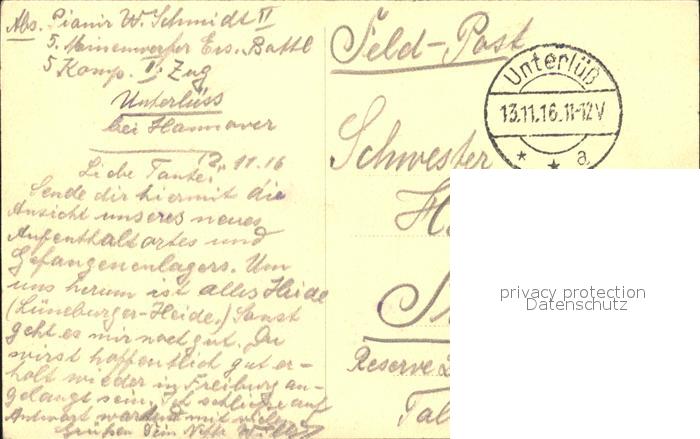 Abs. Pionir W. Schmidt II
5. Minenwerfer Ers. Battl
5 Komp. II. Zug
Unterlüss
bei Hannover
12. 11. 16
Liebe Tante,
Sende dir hiermit die
Ansicht unseres neues
Aufenthaltortes und
Gefangenenlagers. Um
uns herum ist alles Heide
(Lüneburger-Heide.) Sonst
geht es mir noch gut. Du
wirst hoffentlich gut er-
holt wieder in Freiburg an-
gelangt sein. Ich schließe auf
Antwort wartend mit vielen
Grüßen Dein Neffe
Feld-Post
Unterlüß
13.11.16.11-12V
* * a
Schwester
Reserve
privacy protection
Datenschutz